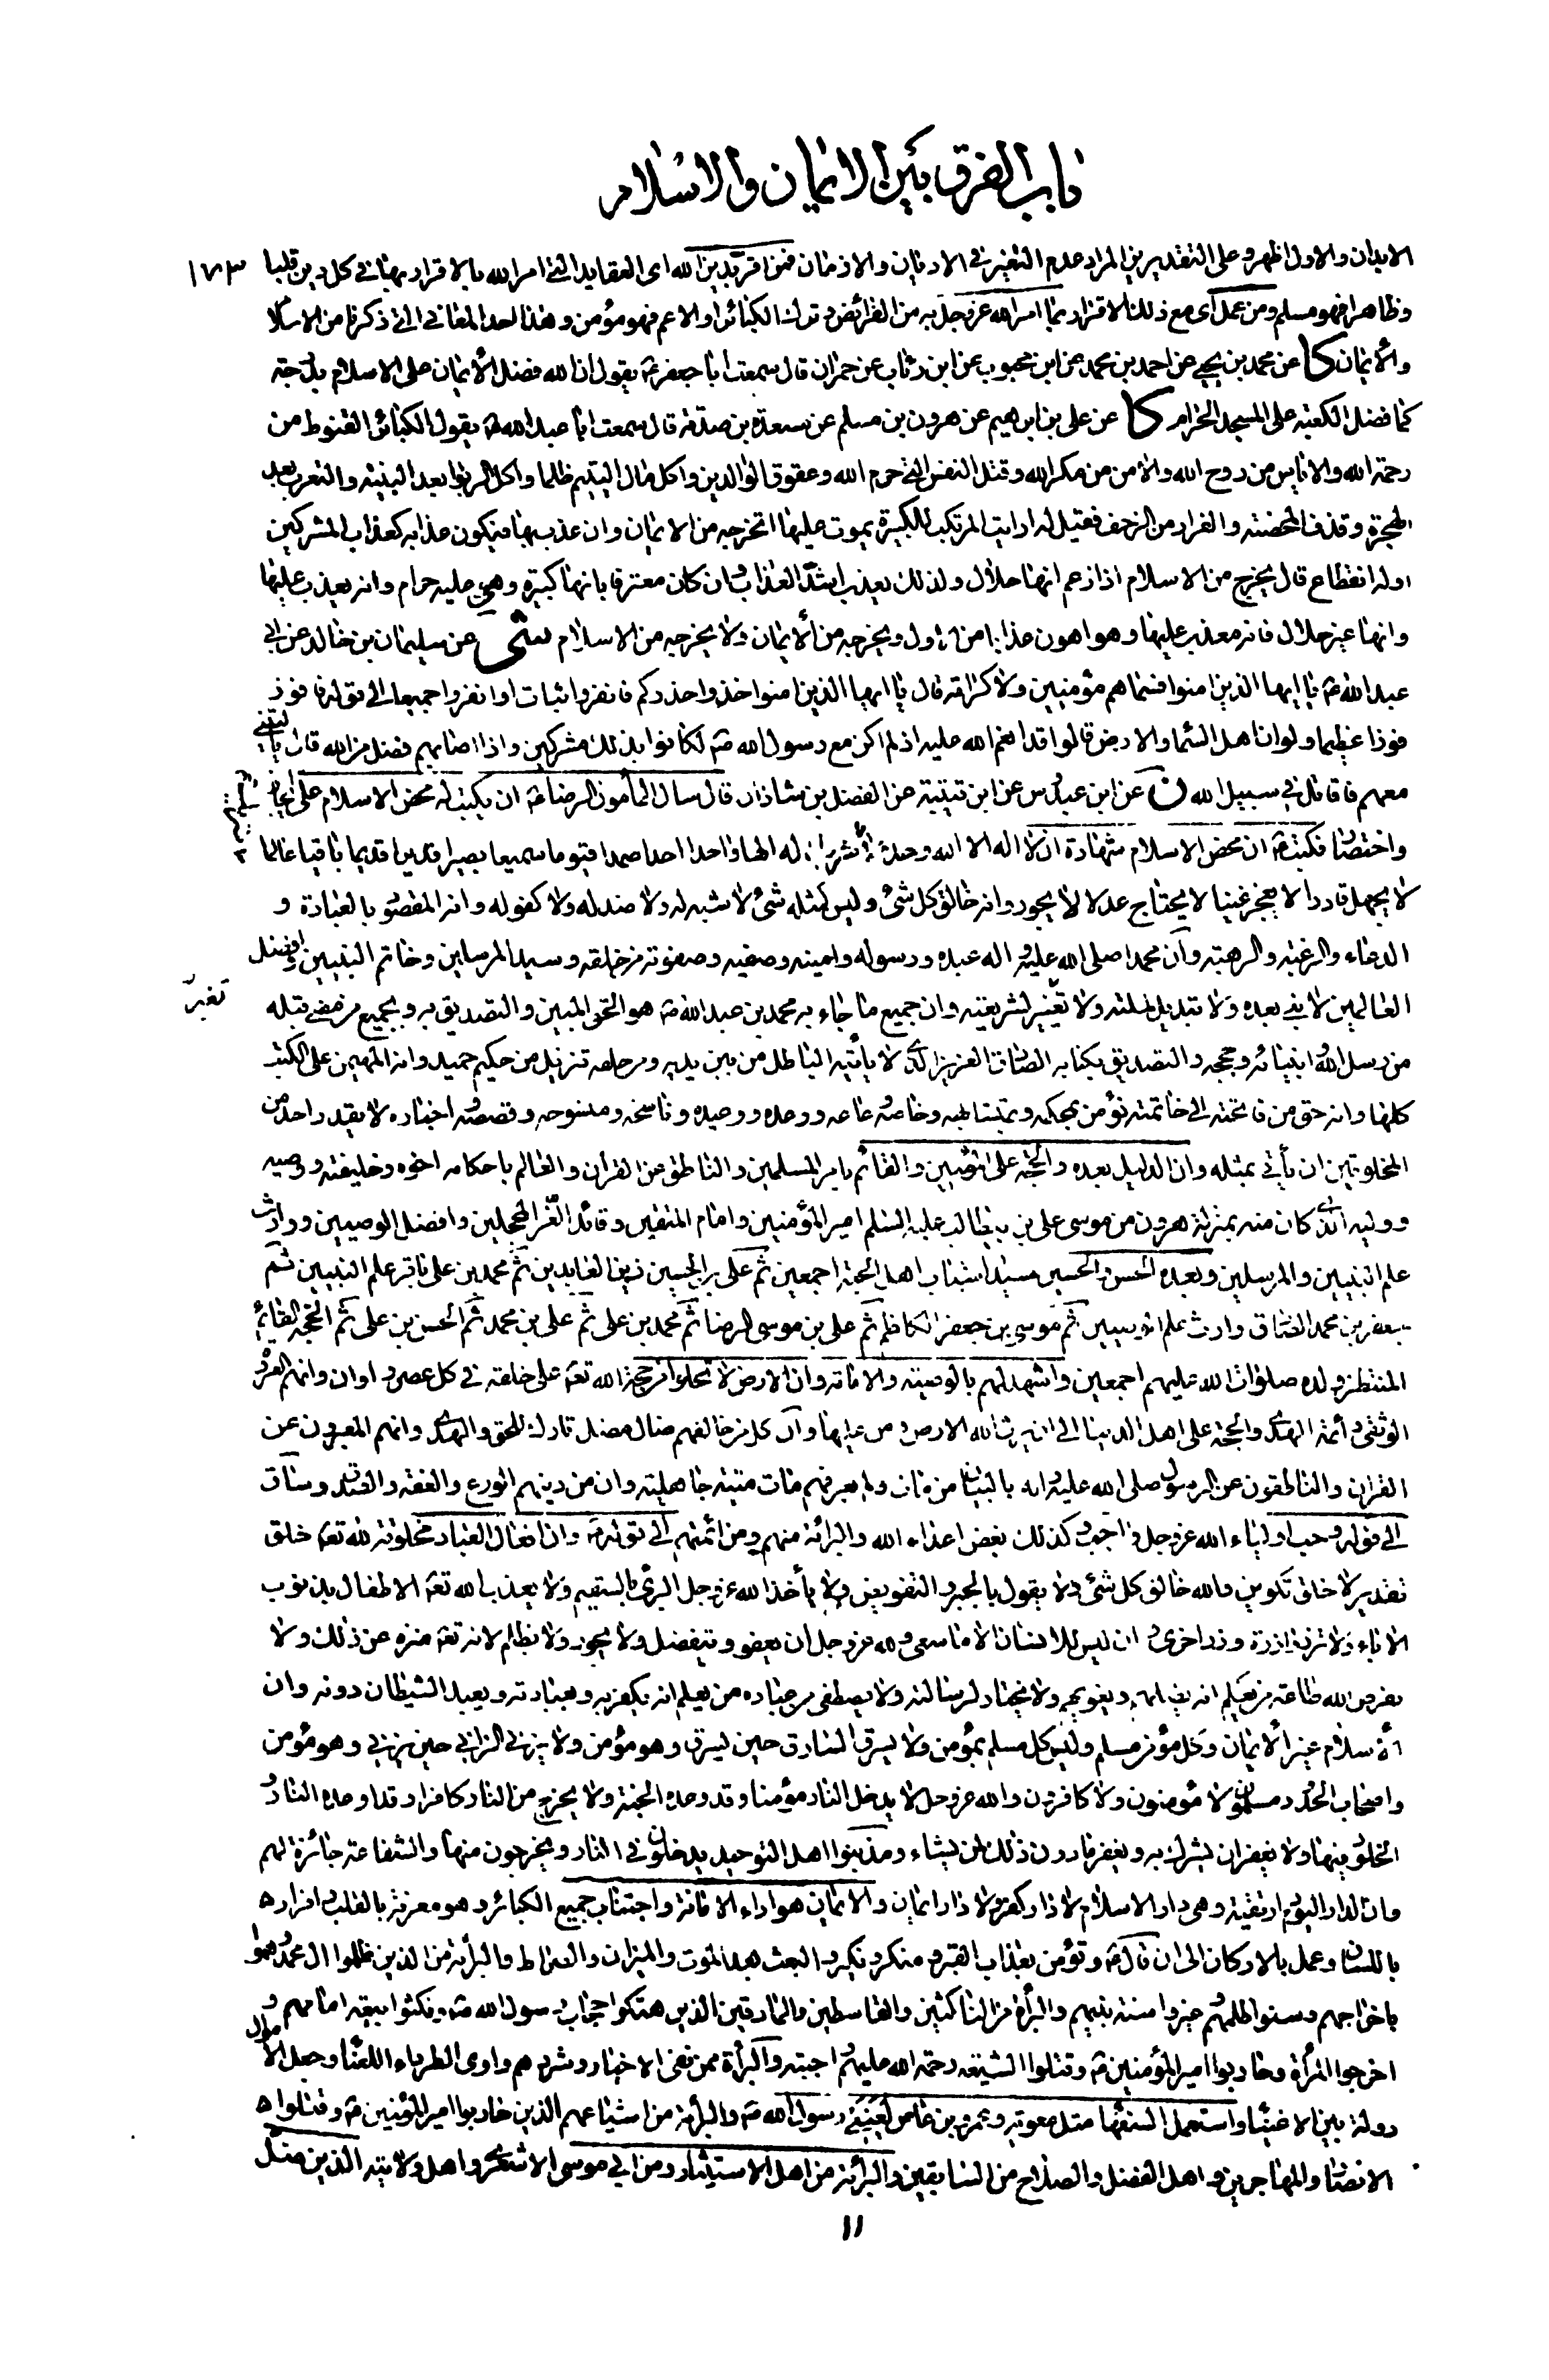 باب الفرق بين الايمان والاسلام
الابدان والاول اظهر وعلى التقديرين المراد عدم التغير في الاديان والازمان فمن اقر بدين الله اى العقايد التى امر الله بالاقرار بها في كل دين قلبا
١٧٣
وظاهرا فهو مسلم ومن عمل اى مع ذلك الاقرار بما امر الله عز وجل به من الفرائض وترك الكبائر او الاعم فهو مؤمن وهذا احد المعاني التى ذكرنا من الاسلام
والايمان كا عن محمد بن يحيى عن احمد بن محمد عن ابن محبوب عن ابن رئاب عن حمران قال سمعت ابا جعفر ع يقول ان الله فضل الايمان على الاسلام بدرجة
كما فضل الكعبة على المسجد الحرام كا عن على بن ابرهيم عن هرون بن مسلم عن مسعدة بن صدقة قال سمعت ابا عبد الله ع يقول الكبائر القنوط من
رحمة الله والاياس من روح الله والامن من مكر الله وقتل النفس التى حرم الله وعقوق الوالدين واكل مال اليتيم ظلما واكل الربا بعد البينة والتعرب بعد
الهجرة وقذف المحصنة والفرار من الزحف فقيل له ارايت المرتكب للكبيرة يموت عليها اتخرجه من الايمان وان عذب بها فيكون عذابه كعذاب المشركين
اوله انقطاع قال يخرج من الاسلام اذا زعم انها حلال ولذلك يعذب اشد العذاب وان كان معترفا بانها كبيرة وهى عليه حرام وانه يعذب عليها
وانها غير حلال فانه معذب عليها وهو اهون عذابا من الاول ويخرجه من الايمان ولا يخرجه من الاسلام شى عن سليمان بن خالد عن ابى
عبد الله ع يا ايها الذين امنوا فسماهم مؤمنين ولا كرامة قال يا ايها الذين امنوا خذوا حذركم فانفروا ثبات او انفروا جميعا الى قوله فافوز
فوزا عظيما ولو ان اهل السماء والارض قالوا قد انعم الله عليه اذ لم اكن مع رسول الله ص لكانوا بذلك مشركين واذا اصابهم فضل من الله قال يا ليتنى
معهم فاقاتل في سبيل الله ن عن ابن عبدوس عن ابن قتيبة عن الفضل بن شاذان قال سال المأمون الرضا ع ان يكتب له محض الاسلام على ايجاز
واختصار فكتب ع ان محض الاسلام شهادة ان لا اله الا الله وحده لا شريك له الها واحدا احدا صمدا قيوما سميعا بصيرا قديرا قديما باقيا عالما
لا يجهل قادرا لا يعجز غنيا لا يحتاج عدلا لا يجور وانه خالق كل شئ وليس كمثله شئ لا شبه له ولا ضد له ولا كفو له وانه المقصود بالعبادة و
الدعاء والرغبة والرهبة وان محمدا صلى الله عليه واله عبده ورسوله وامينه وصفيه وصفوته من خلقه وسيد المرسلين وخاتم النبيين وافضل
العالمين لا نبى بعده ولا تبديل لملته ولا تغيير لشريعته وان جميع ما جاء به محمد بن عبد الله ص هو الحق المبين والتصديق به وبجميع من مضى قبله
تغير
من رسل الله وانبيائه وحججه والتصديق بكتابه الصادق العزيز الذى لا يأتيه الباطل من بين يديه ومن خلفه تنزيل من حكيم حميد وانه المهيمن على الكتب
كلها وانه حق من فاتحته الى خاتمته نؤمن بمحكمه ومتشابهه وخاصه وعامه ووعده ووعيده وناسخه ومنسوخه وقصصه واخباره لا يقدر احد من
المخلوقين ان يأتى بمثله وان الدليل بعده والحجة على المؤمنين والقائم بامر المسلمين والناطق عن القرآن والعالم باحكامه اخوه وخليفته ووصيه
ووليه الذى كان منه بمنزلة هرون من موسى على بن ابى طالب عليه السلم امير المؤمنين وامام المتقين وقائد الغر المحجلين وافضل الوصيين ووارث
علم النبيين والمرسلين وبعده الحسن والحسين سيدا شباب اهل الجنة اجمعين ثم على بن الحسين زين العابدين ثم محمد بن على باقر علم النبيين ثم
جعفر بن محمد الصادق وارث علم الوصيين ثم موسى بن جعفر الكاظم ثم على بن موسى الرضا ثم محمد بن على ثم على بن محمد ثم الحسن بن على ثم الحجة القائم
المنتظر ولده صلوات الله عليهم اجمعين واشهد لهم بالوصية والامامة وان الارض لا تخلو من حجة الله تعه على خلقه في كل عصر واوان وانهم العروة
الوثقى وائمة الهدى والحجة على اهل الدنيا الى ان يرث الله الارض ومن عليها وان كل من خالفهم ضال مضل تارك للحق والهدى وانهم المعبرون عن
القران والناطقون عن الرسول صلى الله عليه واله بالبيان من مات ولم يعرفهم مات ميتة جاهلية وان من دينهم الورع والعفة والصدق وساق
الى قوله وحب اولياء الله عز وجل واجب وكذلك بغض اعداء الله والبرائة منهم ومن ائمتهم الى قوله ع وان افعال العباد مخلوقة لله تعه خلق
تقدير لا خلق تكوين والله خالق كل شئ ولا يقول بالجبر والتفويض ولا يأخذ الله عز وجل البرئ بالسقيم ولا يعذب الله تعه الاطفال بذنوب
الاباء ولا تزر وازرة وزر اخرى وان ليس للانسان الا ما سعى ولله عز وجل ان يعفو ويتفضل ولا يجور ولا يظلم لانه تعه منزه عن ذلك ولا
يفرض الله طاعة من يعلم انه يضلهم ويغويهم ولا يختار لرسالته ولا يصطفى من عباده من يعلم انه يكفر به وبعبادته ويعبد الشيطان دونه وان
الاسلام غير الايمان وكل مؤمن مسلم وليس كل مسلم بمؤمن ولا يسرق السارق حين يسرق وهو مؤمن ولا يزنى الزانى حين يزنى وهو مؤمن
واصحاب الحدود مسلمون لا مؤمنون ولا كافرون والله عز وجل لا يدخل النار مؤمنا وقد وعده الجنة ولا يخرج من النار كافرا وقد اوعده النار و
الخلود فيها ولا يغفر ان يشرك به ويغفر ما دون ذلك لمن يشاء ومذنبوا اهل التوحيد يدخلون في النار ويخرجون منها والشفاعة جائزة لهم
وان الدار اليوم دار تقية وهى دار الاسلام لا دار كفر ولا دار ايمان والايمان هو اداء الامانة واجتناب جميع الكبائر وهو معرفة بالقلب واقرار
باللسان وعمل بالاركان الى ان قال ع وتؤمن بعذاب القبر ومنكر ونكير والبعث بعد الموت والميزان والصراط والبرأة من الذين ظلموا ال محمد وهموا
باخراجهم وسنوا ظلمهم وغيروا سنة نبيهم والبرأة من الناكثين والقاسطين والمارقين الذين هتكوا حجاب رسول الله ص ونكثوا بيعة امامهم و
اخرجوا المرأة وحاربوا امير المؤمنين ع وقتلوا الشيعة رحمة الله عليهم واجبة والبرأة ممن نفى الاخيار وشردهم واوى الطرداء اللعناء وجعل الاموال
دولة بين الاغنياء واستعمل السفهاء مثل معوية وعمرو بن عاص لعينى رسول الله ص والبرأة من اشياعهم الذين حاربوا امير المؤمنين ع وقتلوا
الانصار والمهاجرين واهل الفضل والصلاح من السابقين والبرأة من اهل الاستيثار ومن ابى موسى الاشعرى واهل ولايته الذين ضل
١١